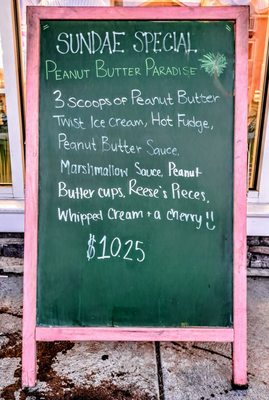 SUNDAE SPECIAL
PEANUT BUTTER PARADISE
3 SCOOPS OF PEANUT BUTTER
TWIST ICE CREAM, HOT FUDGE,
PEANUT BUTTER SAUCE,
MARSHMALLOW SAUCE, PEANUT
BUTTER CUPS, REESE'S PIECES,
WHIPPED CREAM + A CHERRY!!
$10.25